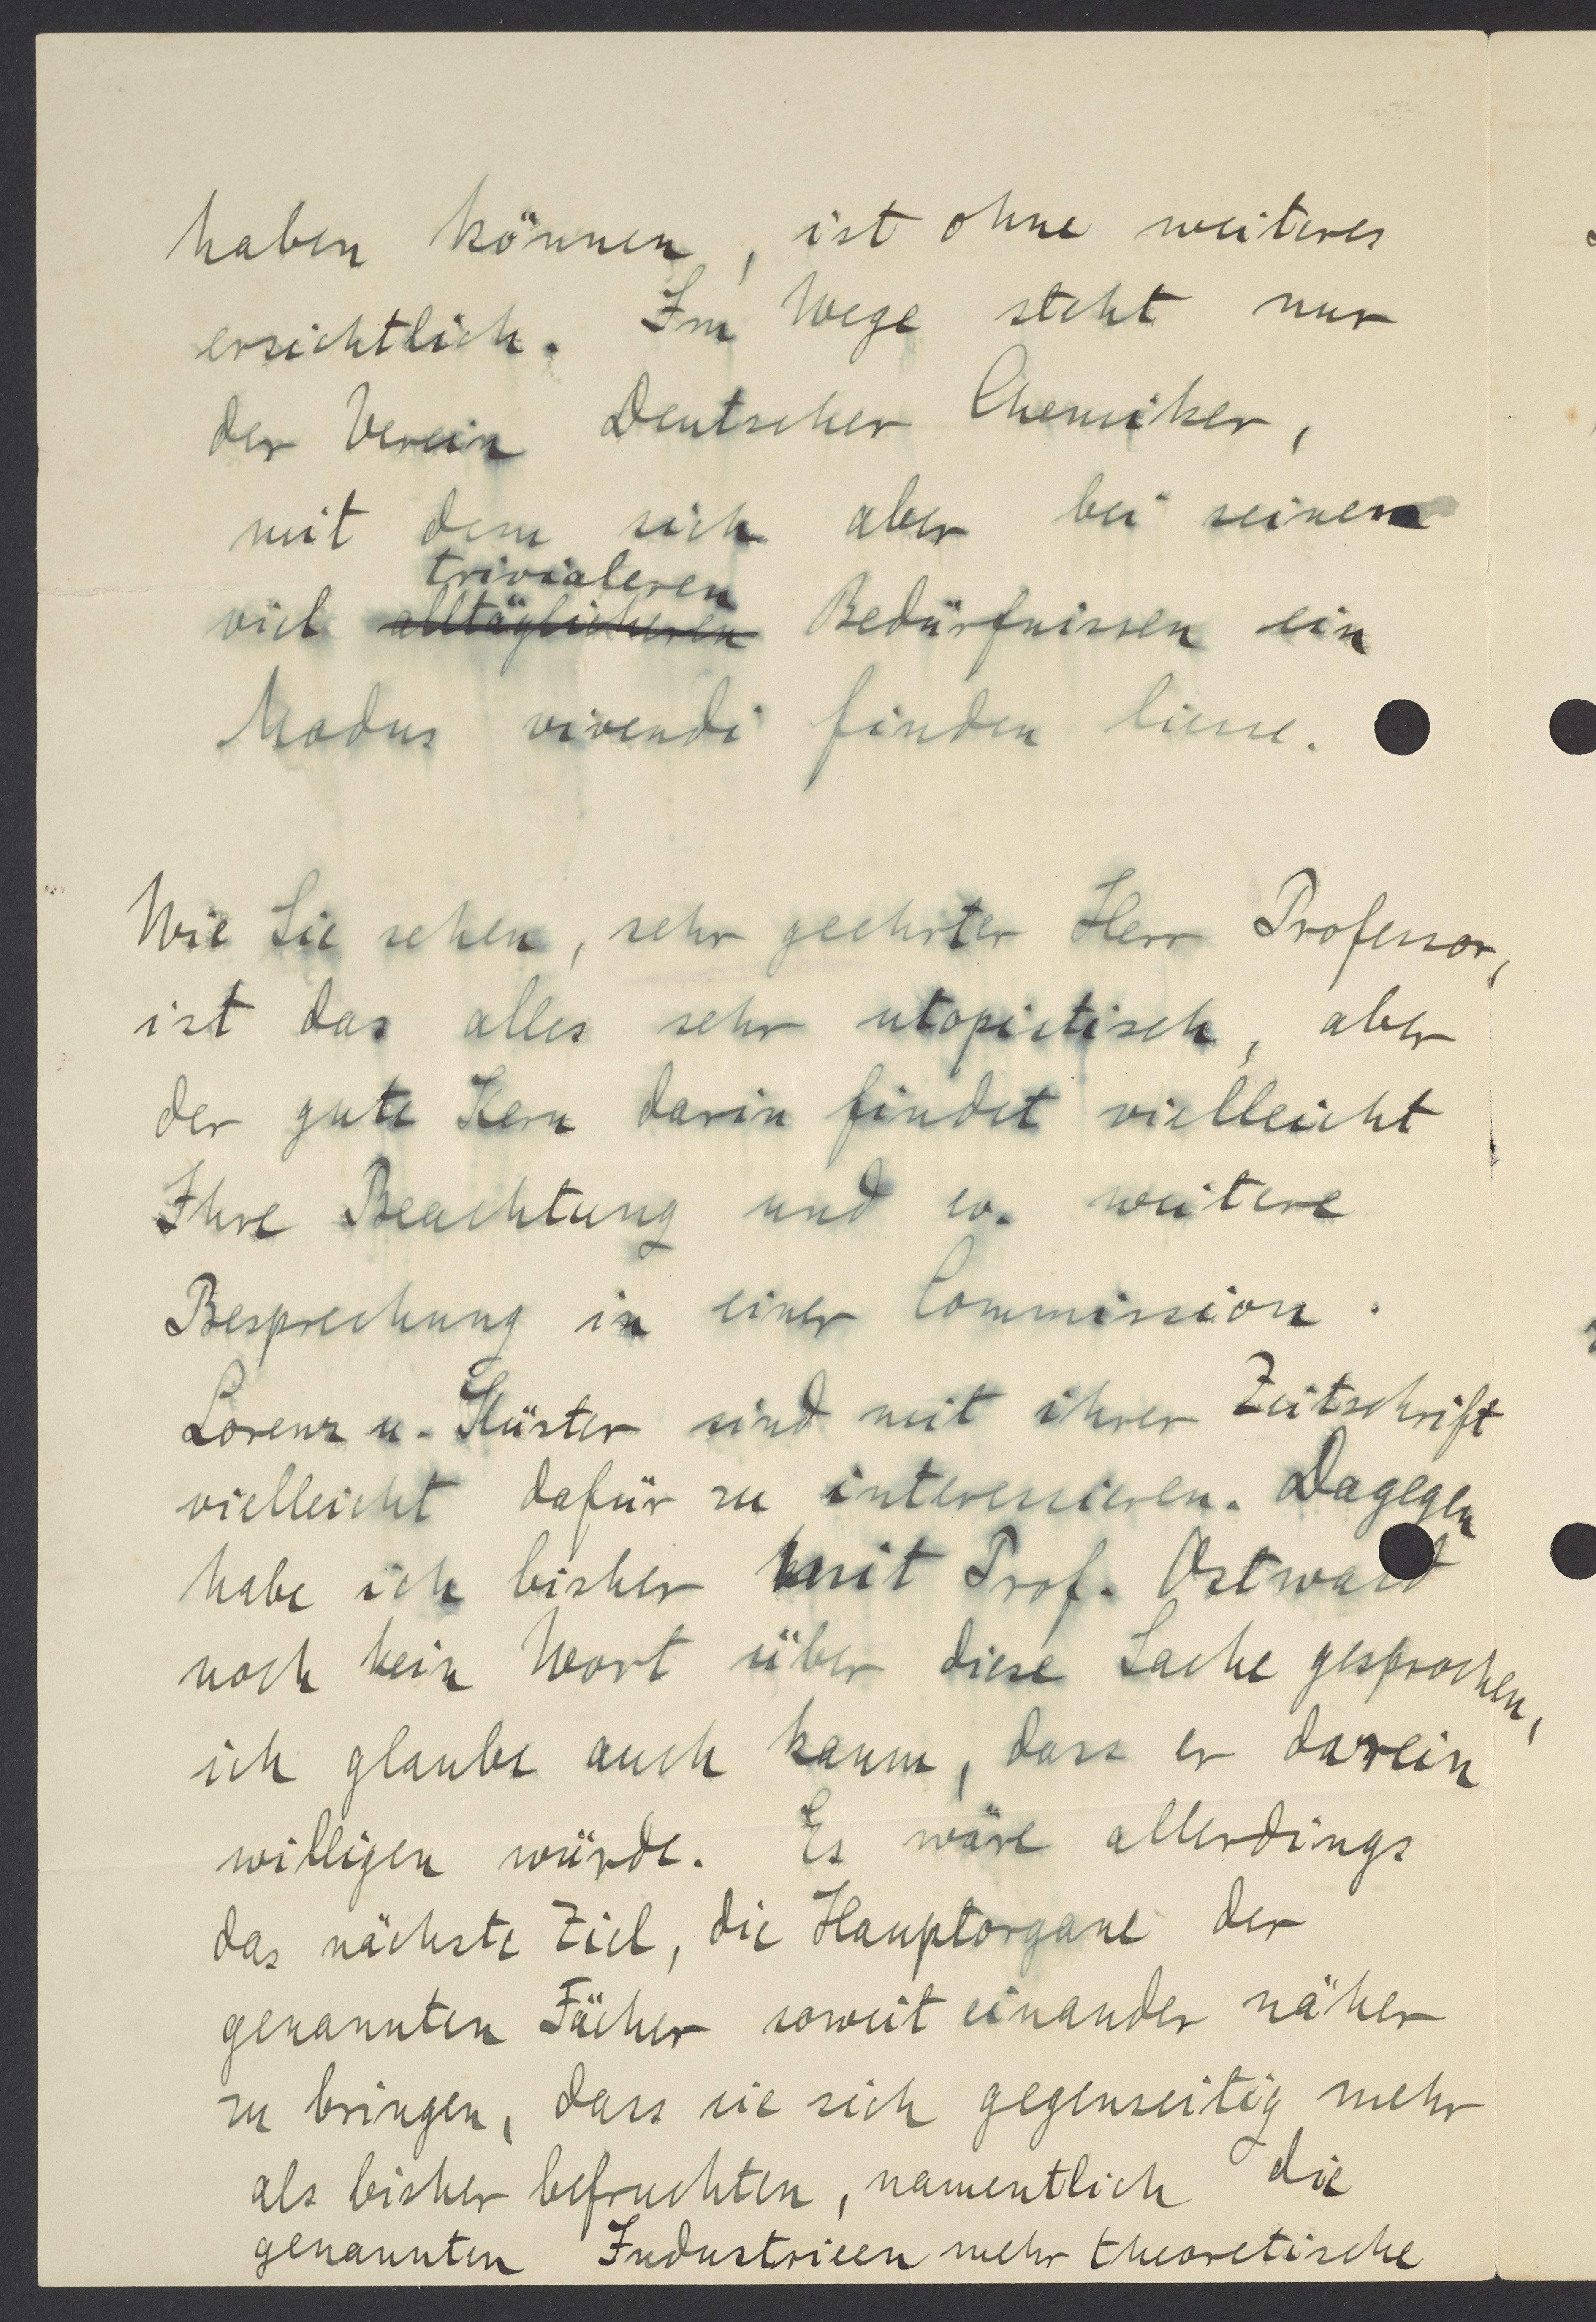 haben können, ist ohne weiteres
ersichtlich. Im Wege steht nur
der Verein Deutscher Chemiker,
mit dem sich aber bei seinen
trivialeren
viel alltäglicheren Bedürfnissen ein
Modus vivendi finden liesse.
Wie Sie sehen, sehr geehrter Herr Professor,
ist das alles sehr utopistisch, aber
der gute Kern darin findet vielleicht
Ihre Beachtung und ev. weitere
Besprechung in einer Commission.
Lorenz u. Küster sind mit ihrer Zeitschrift
vielleicht dafür zu interessieren. Dagegen
habe ich bisher mit Prof. Ostwald
noch kein Wort über diese Sache gesprochen,
ich glaube auch kaum, dass er darein
willigen würde. Es wäre allerdings
das nächste Ziel, die Hauptorgane der
genannten Fächer soweit einander näher
zu bringen, dass sie sich gegenseitig mehr
als bisher befruchten, namentlich die
genannten Industrieen mehr theoretische